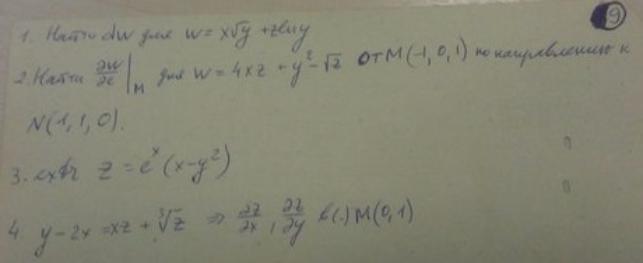 9
1. Найти dw для w = x√y + z ln y
2. Найти ∂w/∂e |_M для w = 4xz + y² - √z от M(-1, 0, 1) по направлению к
N(1, 1, 0).
3. extr z = eˣ(x-y²)
4. y - 2x = xz + ∛z ⇒ ∂z/∂x, ∂z/∂y в (.) M(0, 1)